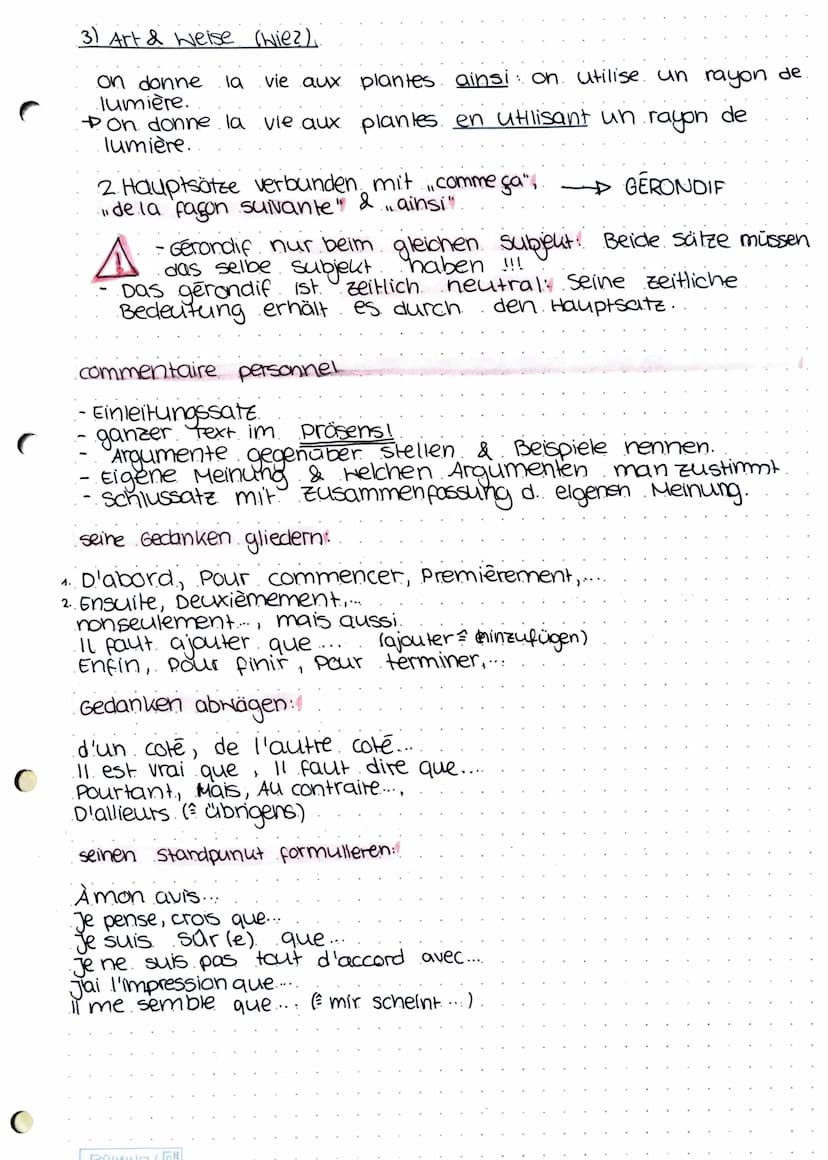 3) Art & Weise (wie?).
On donne la vie aux plantes ainsi: on utilise un rayon de
lumière.
→ On donne la vie aux plantes en utilisant un rayon de
lumière.
2 Hauptsätze verbunden mit „comme ça", → GÉRONDIF
„de la façon suivante" & „ainsi"
- Gérondif nur beim gleichen Subjekt! Beide Sätze müssen
das selbe Subjekt haben !!!
- Das gérondif ist zeitlich neutral: Seine zeitliche
Bedeutung erhält es durch den Hauptsatz.
commentaire personnel
- Einleitungssatz
- ganzer Text im Präsens!
- Argumente gegenüber stellen & Beispiele nennen.
- Eigene Meinung & welchen Argumenten man zustimmt
- Schlussatz mit Zusammenfassung d. eigenen Meinung.
seine Gedanken gliedern:
1. D'abord, Pour commencer, Premièrement,...
2. Ensuite, Deuxièmement,...
nonseulement..., mais aussi
Il faut ajouter que ... (ajouter ≙ hinzufügen)
Enfin, pour finir, pour terminer,...
Gedanken abwägen:
d'un coté, de l'autre coté...
Il est vrai que , Il faut dire que...
Pourtant, Mais, Au contraire...,
D'allieurs (≙ übrigens)
seinen Standpunkt formulieren:
À mon avis...
Je pense, crois que...
Je suis sûr(e) que...
Je ne suis pas tout d'accord avec...
J'ai l'impression que...
Il me semble que... (≙ mir scheint ...)